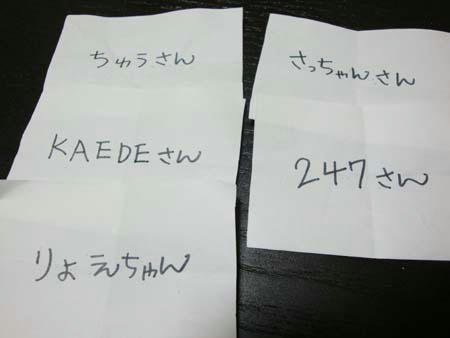 ちゅうさん
KAEDEさん
りょえちゃん
さっちゃんさん
247さん